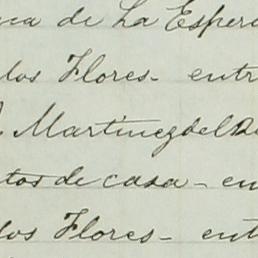 de La Esper
los Flores - entr
Martinez del
tos de casa - en
los Flores - ent